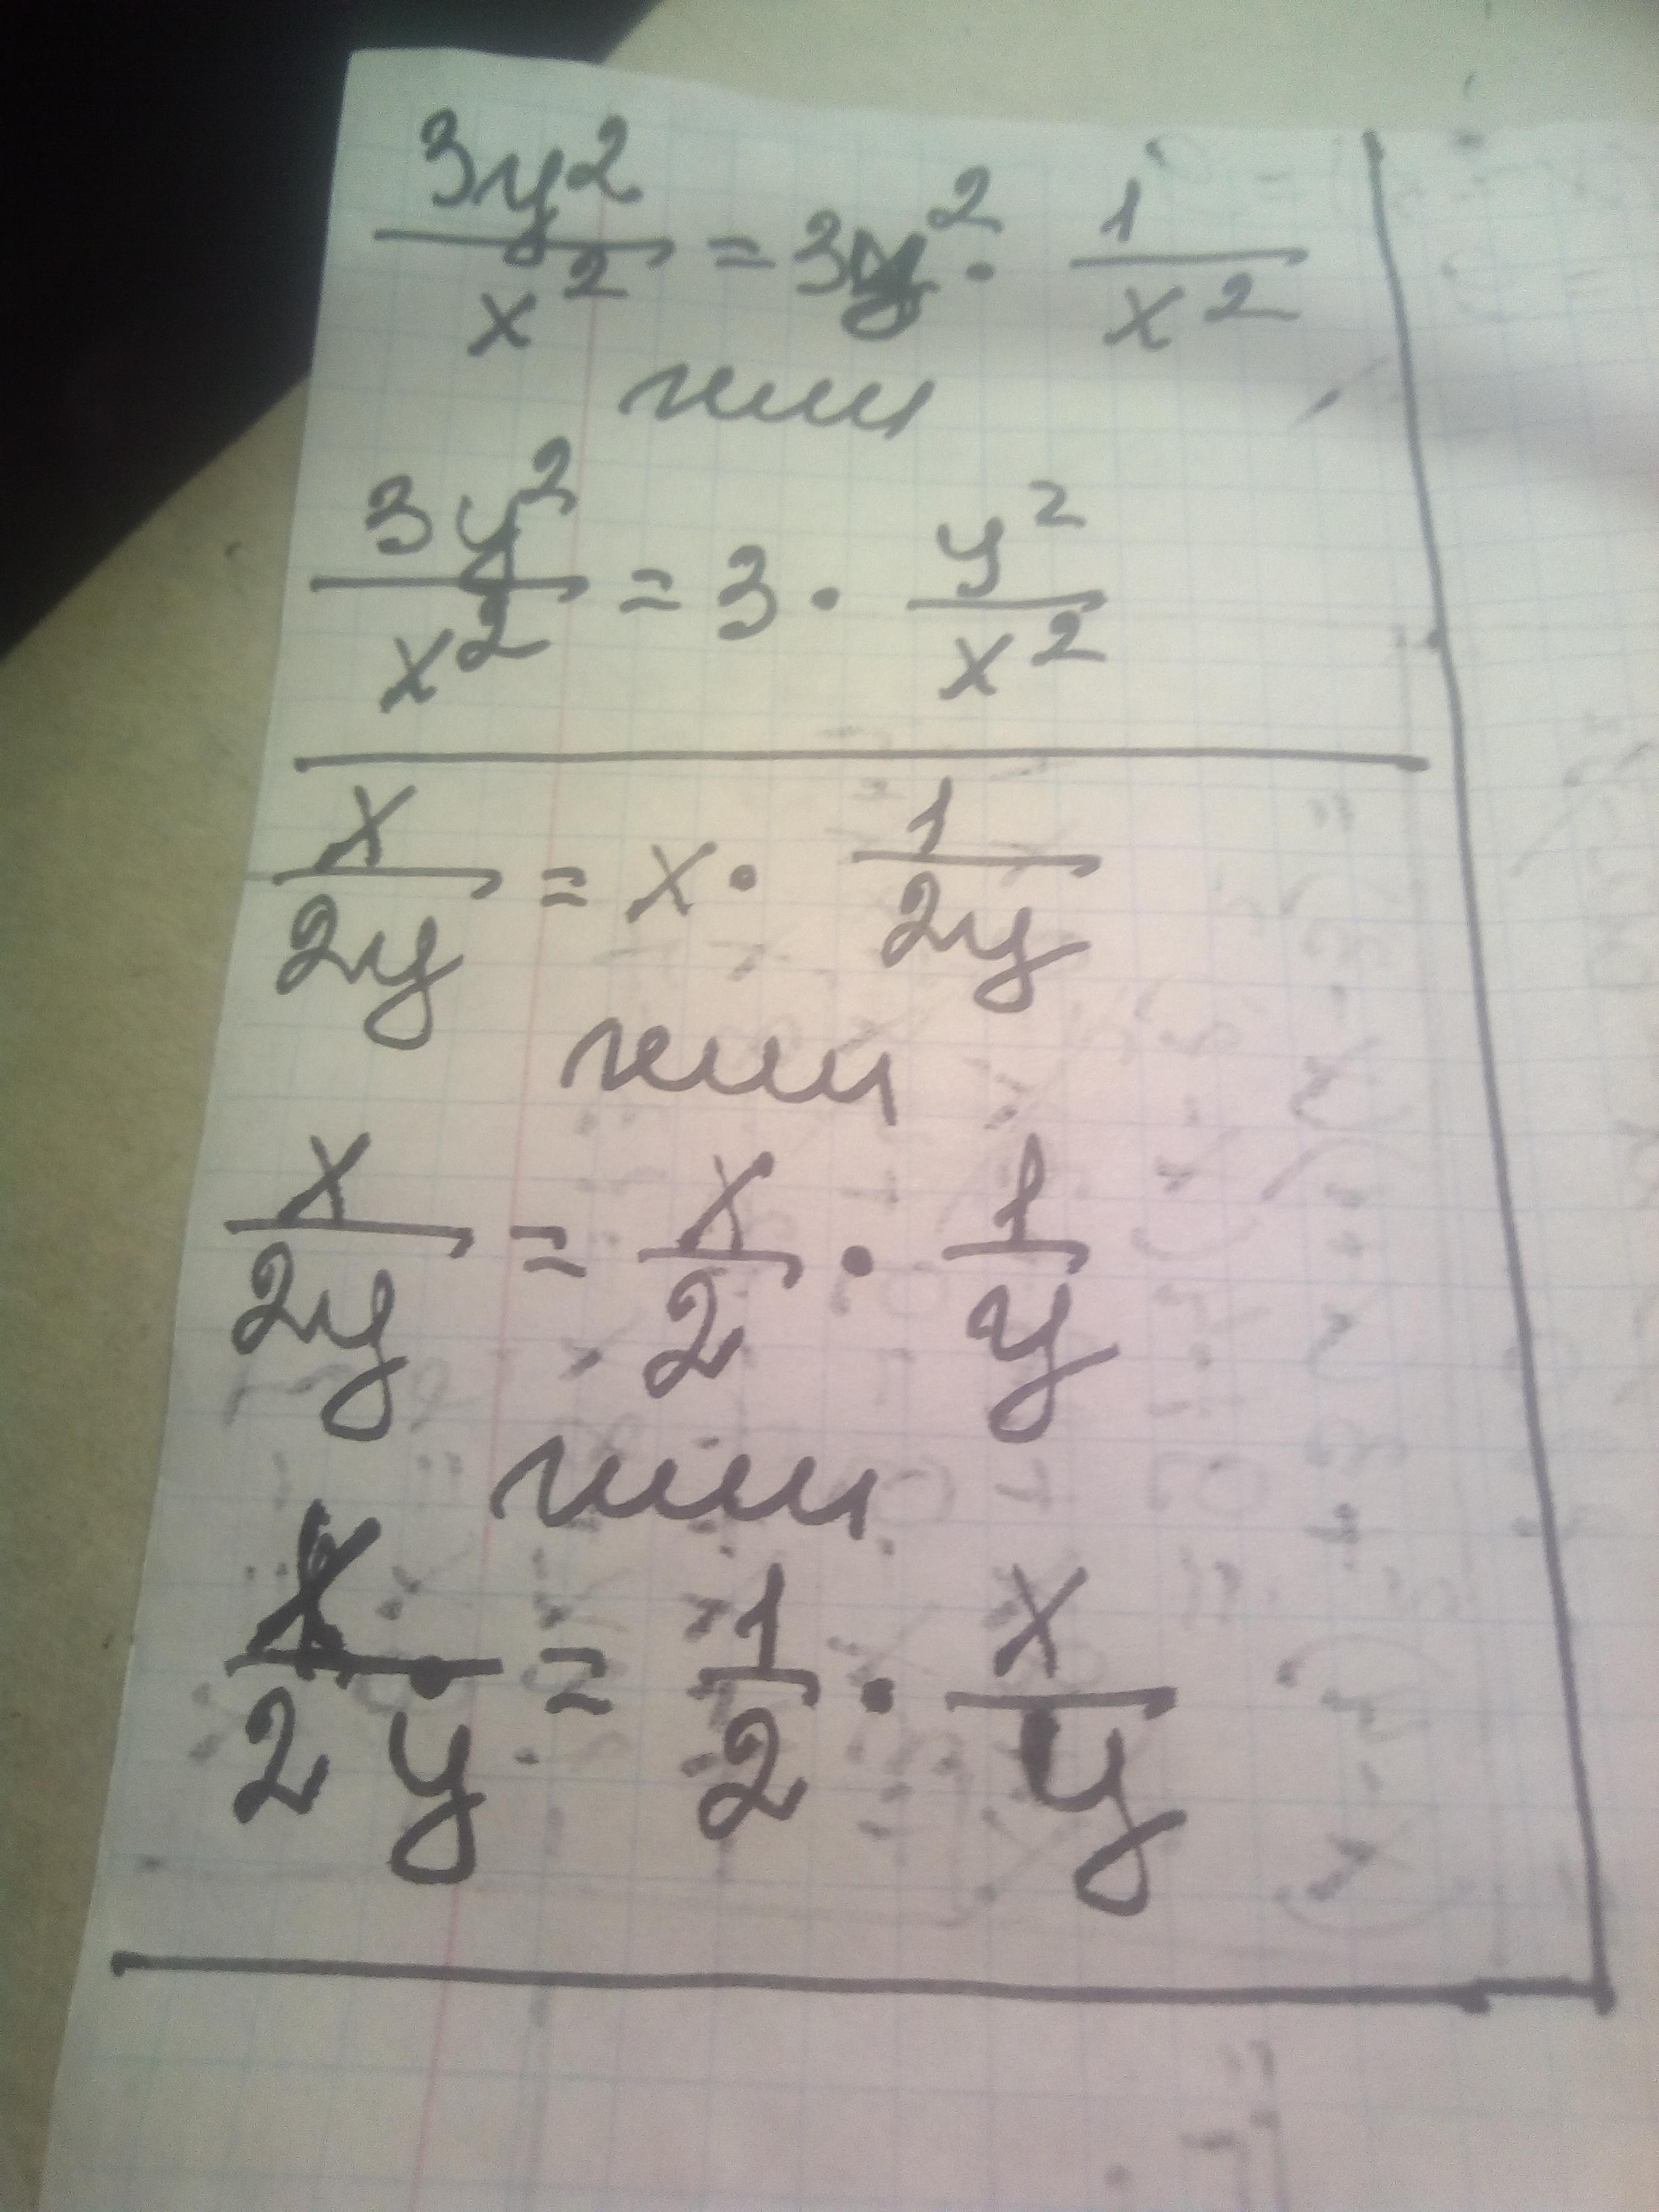 3y²/x² = 3y² · 1/x²
или
3y²/x² = 3 · y²/x²
x/2y = x · 1/2y
или
x/2y = x/2 · 1/y
или
x/2y = 1/2 · x/y